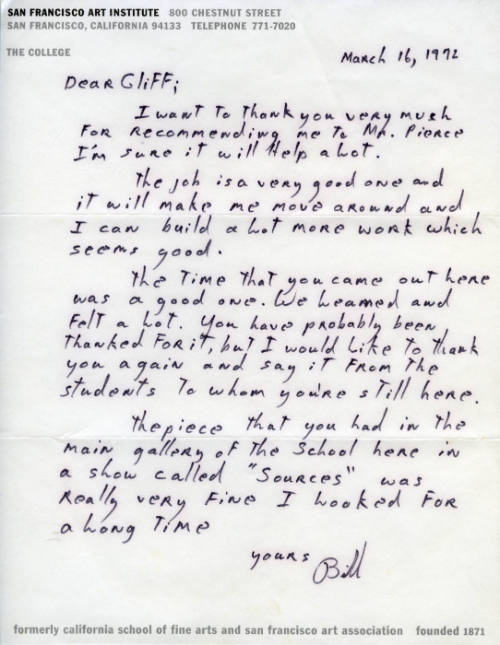 SAN FRANCISCO ART INSTITUTE 800 CHESTNUT STREET
SAN FRANCISCO, CALIFORNIA 94133 TELEPHONE 771-7020
THE COLLEGE
March 16, 1972
Dear Cliff;
I want to thank you very mush
for recommending me to Mr. Pierce
I'm sure it will Help a Lot.
The job is a very good one and
it will make me move around and
I can build a Lot more work which
seems good.
The Time that you came out here
was a good one. We Learned and
Felt a Lot. You have probably been
thanked For it, but I would Like to thank
you again and say it From the
students To whom you're still here.
The piece that you had in the
main gallery of the School here in
a show called "Sources" was
Really very Fine I Looked For
a Long Time
yours Bill
formerly california school of fine arts and san francisco art association founded 1871